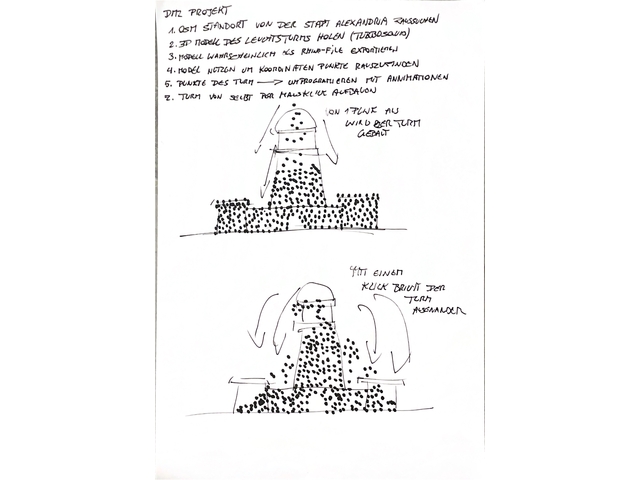 DM2 PROJEKT
1. OSM STANDORT VON DER STADT ALEXANDRIA RAUSSUCHEN
2. 3D MODELL DES LEUCHTTURMS HOLEN (TURBOSQUID)
3. MODELL WAHRSCHEINLICH ALS RHINO-FILE EXPORTIEREN
4. MODELL NUTZEN UM KOORDINATEN PUNKTE RAUSZUFINDEN
5. PUNKTE DES TURM → UMPROGRAMIEREN MIT ANNIMATIONEN
TURM VON SELBST PER MAUSKLICK AUFBAUEN
VON 1 PUNKT AUS
WIRD DER TURM
GEBAUT
MIT EINEM
KLICK BRICHT DER
TURM
AUSEINANDER